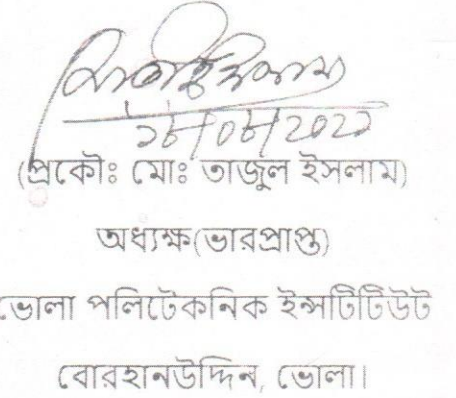 (প্রকৌঃ মোঃ তাজুল ইসলাম)
অধ্যক্ষ(ভারপ্রাপ্ত)
ভোলা পলিটেকনিক ইন্সটিটিউট
বোরহানউদ্দিন, ভোলা।